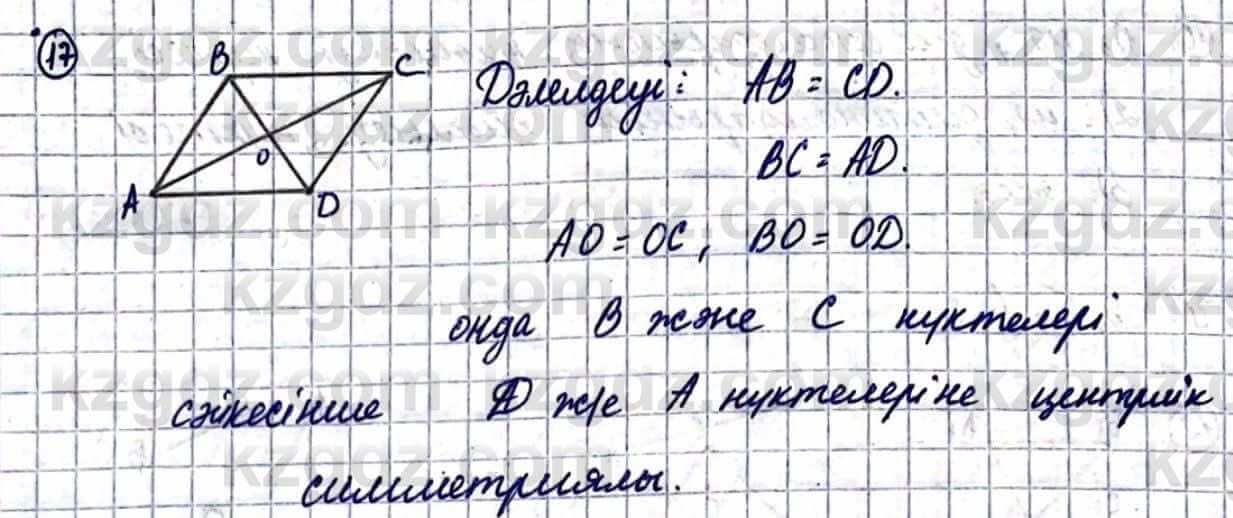 17
B C
O
A D
Дәлелдеуі: AB = CD.
BC = AD.
AO = OC, BO = OD.
онда B және C нүктелері
сәйкесінше D ж/е A нүктелеріне центрлік
симметриялы.
kzgdz.com